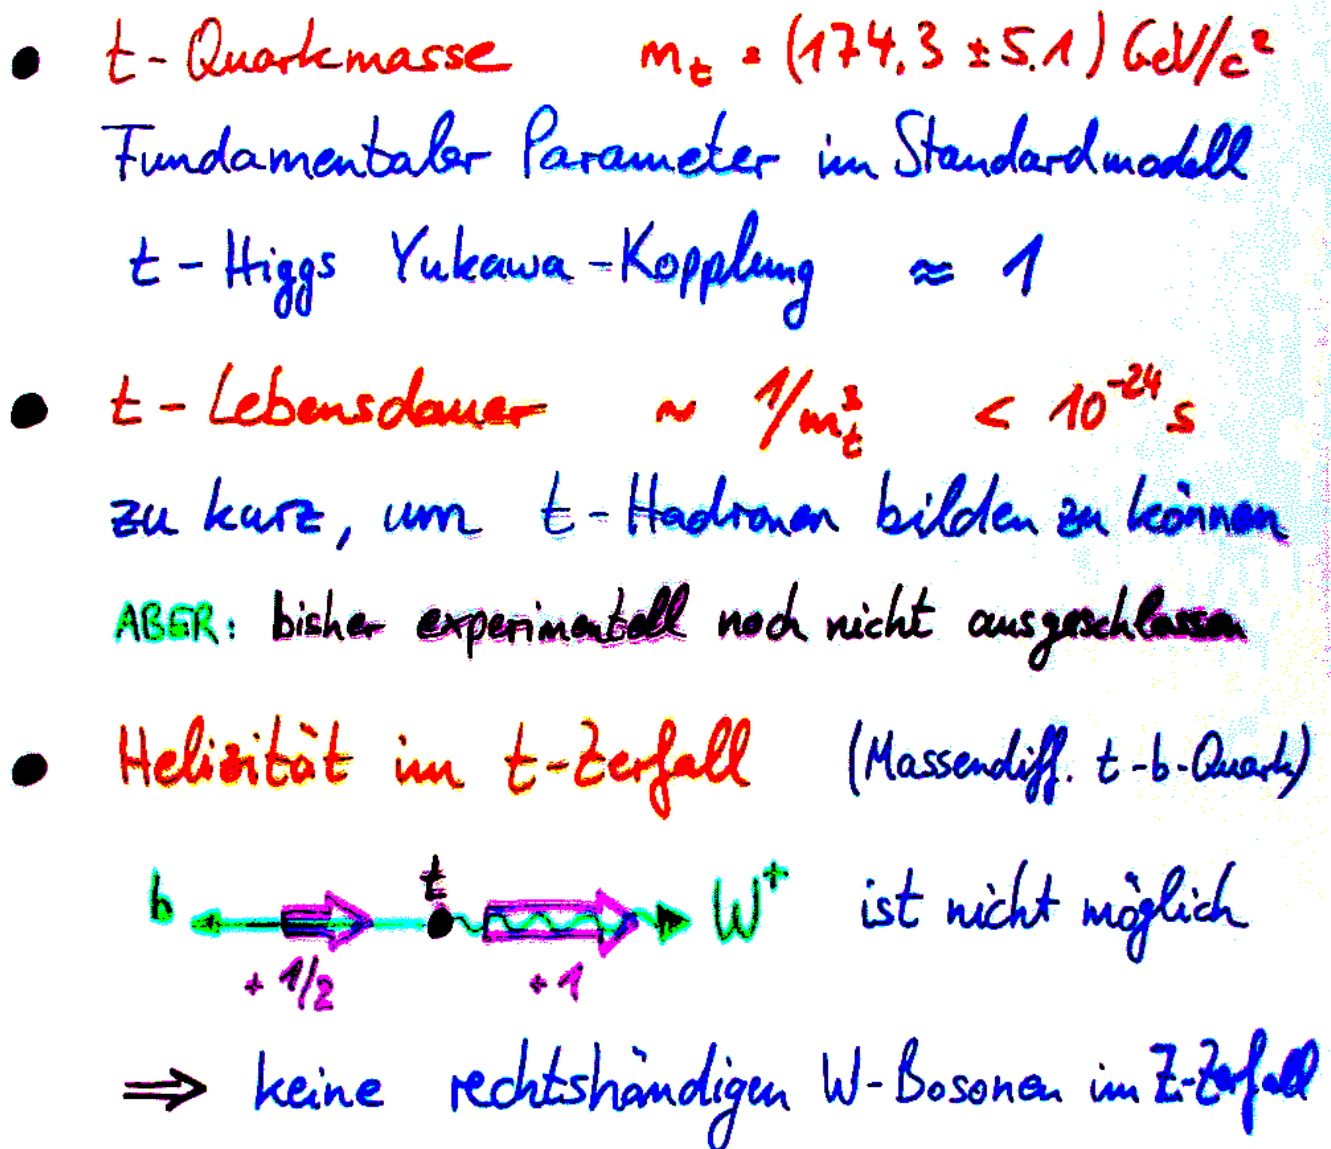 • t-Quarkmasse m_t = (174.3 ± 5.1) GeV/c²
Fundamentaler Parameter im Standardmodell
t-Higgs Yukawa-Kopplung ≈ 1
• t-Lebensdauer ~ 1/m_t³ < 10⁻²⁴ s
zu kurz, um t-Hadronen bilden zu können
ABER: bisher experimentell noch nicht ausgeschlossen
• Helizität im t-Zerfall (Massendiff. t-b-Quark)
b t W⁺ ist nicht möglich
+ 1/2 + 1
⇒ keine rechtshändigen W-Bosonen im Z-Zerfall